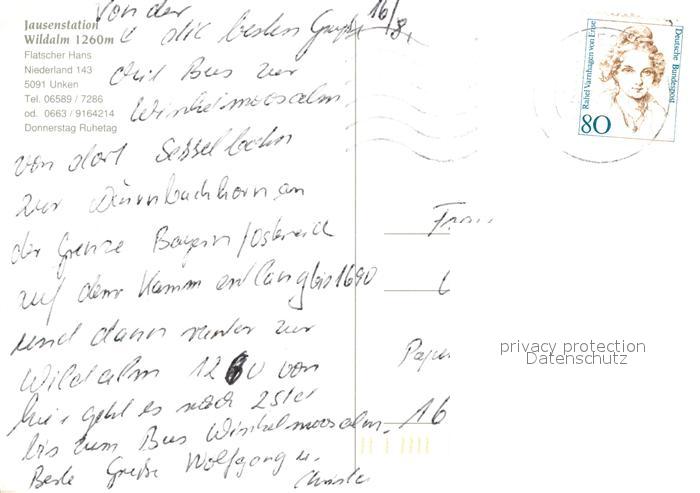 Jausenstation
Wildalm 1260m
Flatscher Hans
Niederland 143
5091 Unken
Tel. 06589 / 7286
od. 0663 / 9164214
Donnerstag Ruhetag
Von der 16/8.
die besten Grüße
mit Bus zur
Winkelmoosalm
von dort Sesselbahn
zur Dürrnbachhorn an
der Grenze Bayern/Östereich
auf dem Kamm entlang bis 1690
und dann runter zur
Wildalm 1260 von
hier geht es nach 2 Std
bis zum Bus Winkelmoosalm.
Beste Grüße Wolfgang u.
Christa
80
Rahel Varnhagen von Ense
Deutsche Bundespost
Frau
16
privacy protection
Datenschutz